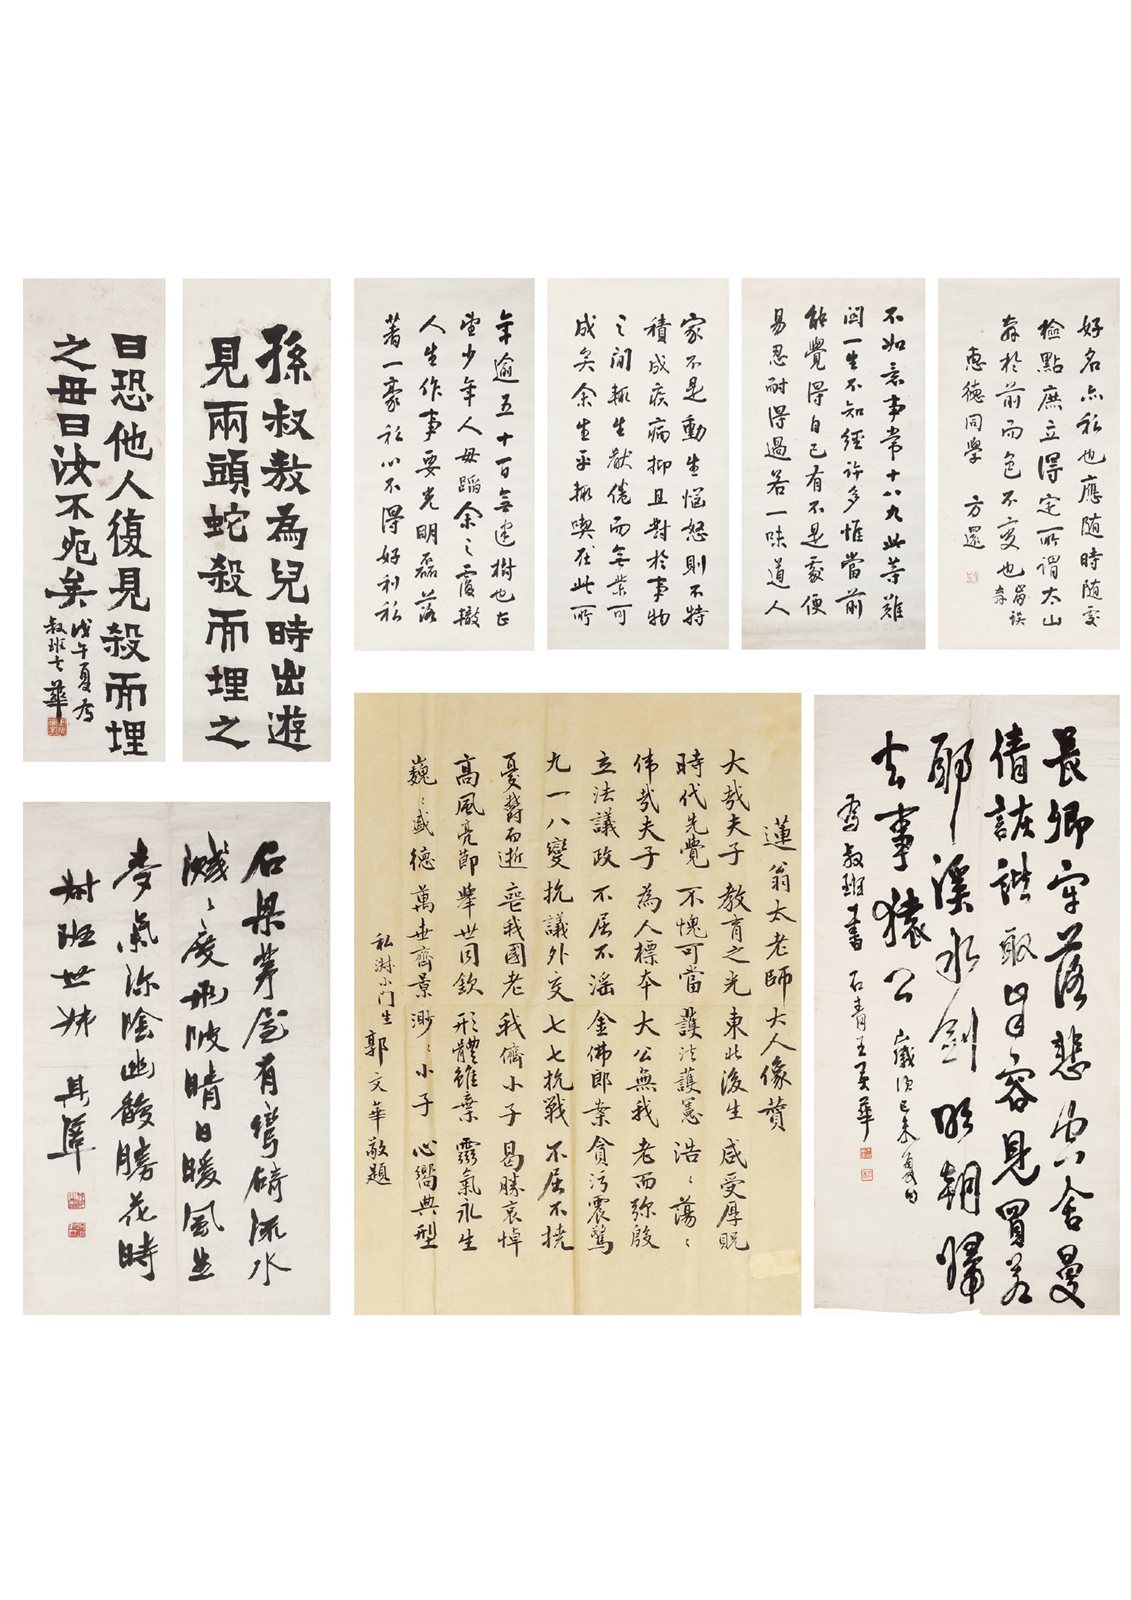 孫叔敖為兒時出遊
見兩頭蛇殺而埋之
曰恐他人復見殺而埋
之母曰汝不死矣
戊午夏為
叔班七華
年逾五十百無建樹也亡
望少年人毋蹈余之覆轍
人生作事要光明磊落
著一豪私心不得好利私
家不是動生惱怒則不特
積成疾病抑且對於事物
之間輒生厭倦而無業可
成矣余生平輒喫在此所
不如意事常十八九此等難
関一生不知經許多惟當前
能覺得自己有不是處便
易忍耐得過若一味道人
好名亦私也應隨時隨處
檢點庶立得定所謂太山
崩於前而色不變也
崩誤
惠德同學
方還
石梁茅屋有彎碕流水
濺濺度兩陂晴日暖風生
麥氣綠陰幽草勝花時
樹班世妹
蓮翁太老師大人像贊
大哉夫子 教育之光 東北後生 咸受厚貺
時代先覺 不愧可當 護法護憲 浩浩蕩蕩
偉哉夫子 為人標本 大公無我 老而弥殷
立法議政 不屈不淫 金佛郎案 貪污震驚
九一八變 抗議外交 七七抗戰 不屈不撓
憂鬱而逝 喪我國老 我儕小子 曷勝哀悼
高風亮節 舉世同欽 形體雖棄 靈氣永生
巍巍盛德 萬世齊景 渺渺小子 心嚮典型
私淑小门生 郭文華敬題
長卿牢落悲空舍曼
倩詼諧取自容見買若
耶溪水劍明朝歸
去事猿公
歲次己未夏日
為叔班書 石青王英華